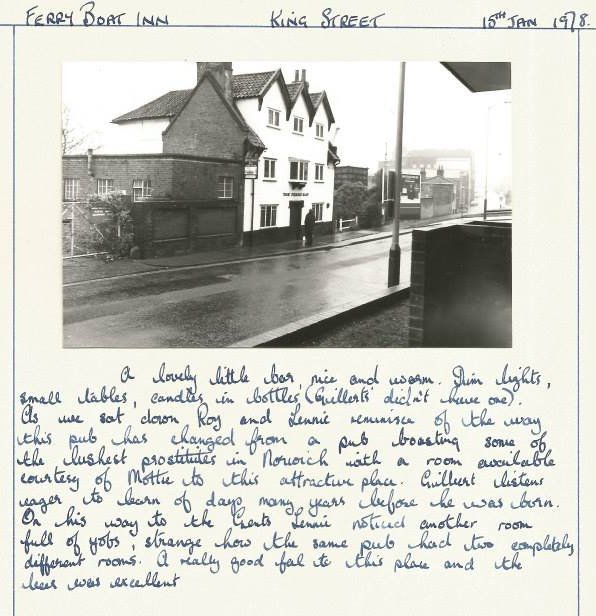 FERRY BOAT INN KING STREET 15TH JAN 1978.
THE FERRY BOAT
A lovely little bar, nice and warm. Dim lights,
small tables, candles in bottles (Guillerts' didn't have one).
As we sat down Roy and Lennie reminisce of the way
this pub has changed from a pub boasting some of
the lushest prostitutes in Norwich with a room available
courtesy of Mottie to this attractive place. Guillert listens
eager to learn of days many years before he was born.
On his way to the Gents Lennie noticed another room
full of yobs, strange how the same pub had two completely
different rooms. A really good feel to this place and the
beer was excellent